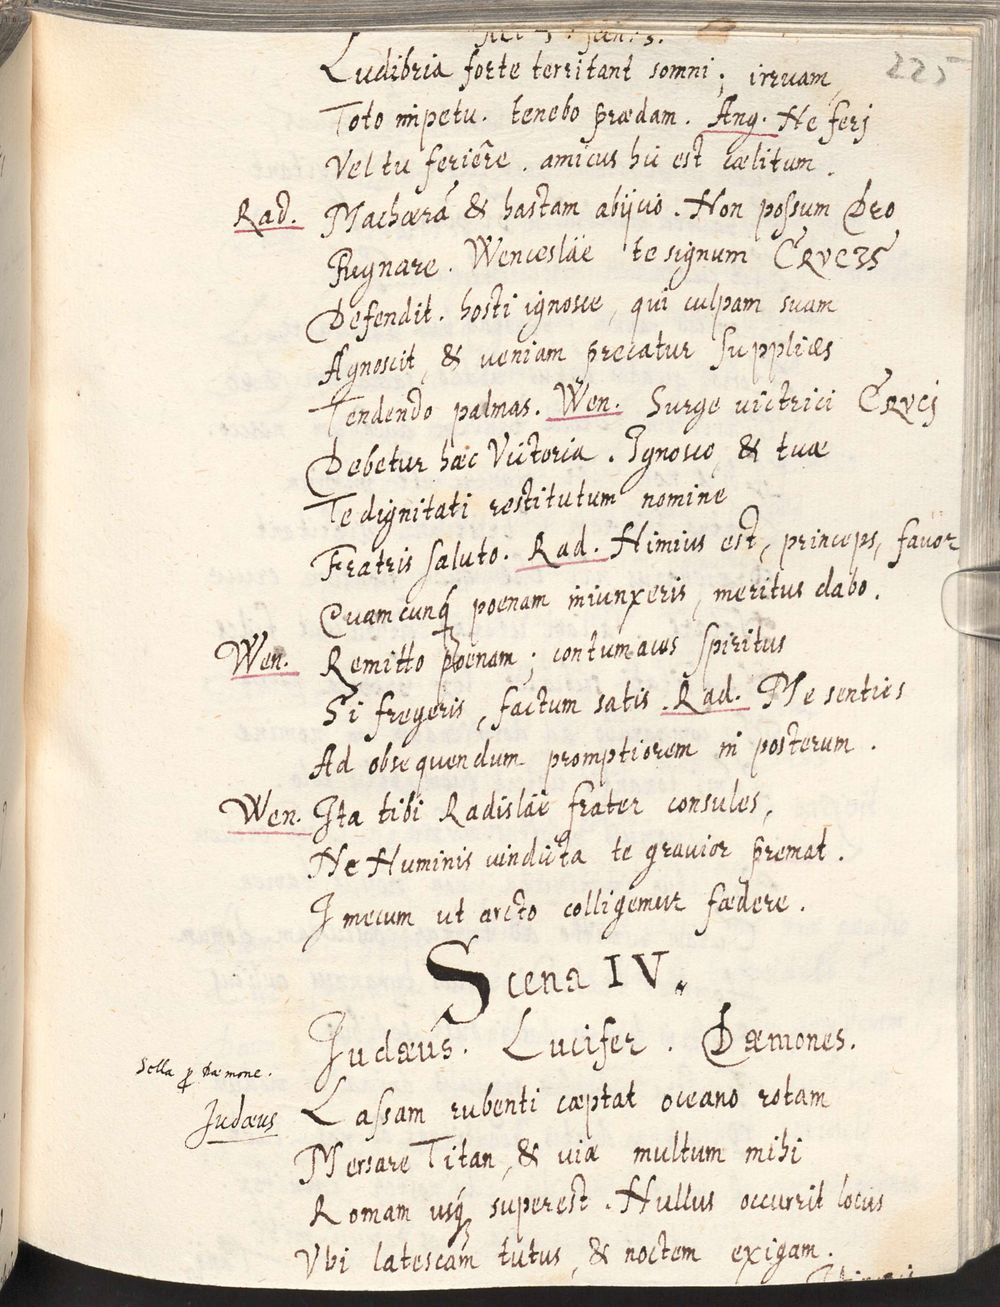 Act. 3. Scen. 3.
225
Ludibria forte territant somni; irruam,
Toto impetu. tenebo prædam. Ang. Ne ferj
Vel tu feriêre. amicus hic est cælitum.
Rad. Machærã & hastam abijcio. Non possum Deo
Pugnare. Wencesläe te signum CRVCIS
Defendit. hosti ignosce, qui culpam suam
Agnoscit, & veniam precatur supplices
Tendendo palmas. Wen. Surge victrici CRVCj
Debetur hæc Victoria. Ignosco, & tuæ
Te dignitati restitutum nomine
Fratris saluto. Rad. Nimius est, princeps, favor
Quamcunq́ poenam iniunxeris, meritus dabo.
Wen. Remitto poenam; contumaces spiritus
Si fregeris, factum satis. Rad. Me senties
Ad obsequendum promptiorem in posterum.
Wen. Ita tibi Radisläe frater consules,
Ne Numinis vindicta te gravior premat.
I mecum ut arcto colligemur fædere.
Scena IV.
Judæus. Lucifer. Dæmones.
Sella ꝓ dæmone.
Judæus Lassam rubenti cæptat oceano rotam
Mersare Titan, & viæ multum mihi
Romam usq́ superest. Nullus occurrit locus
Vbi latescam tutus, & noctem exigam.